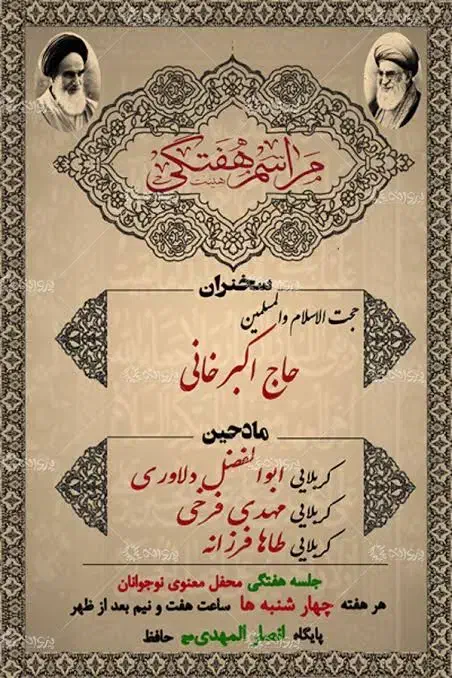 مراسم هفتگی
هیئت
سخنران
حجت الاسلام والمسلمین
حاج اکبر خانی
مادحین
کربلایی ابوالفضل دلاوری
کربلایی مهدی فرخی
کربلایی طاها فرزانه
جلسه هفتگی محفل معنوی نوجوانان
هر هفته چهار شنبه ها ساعت هفت و نیم بعد از ظهر
پایگاه انصار المهدی عج حافظ